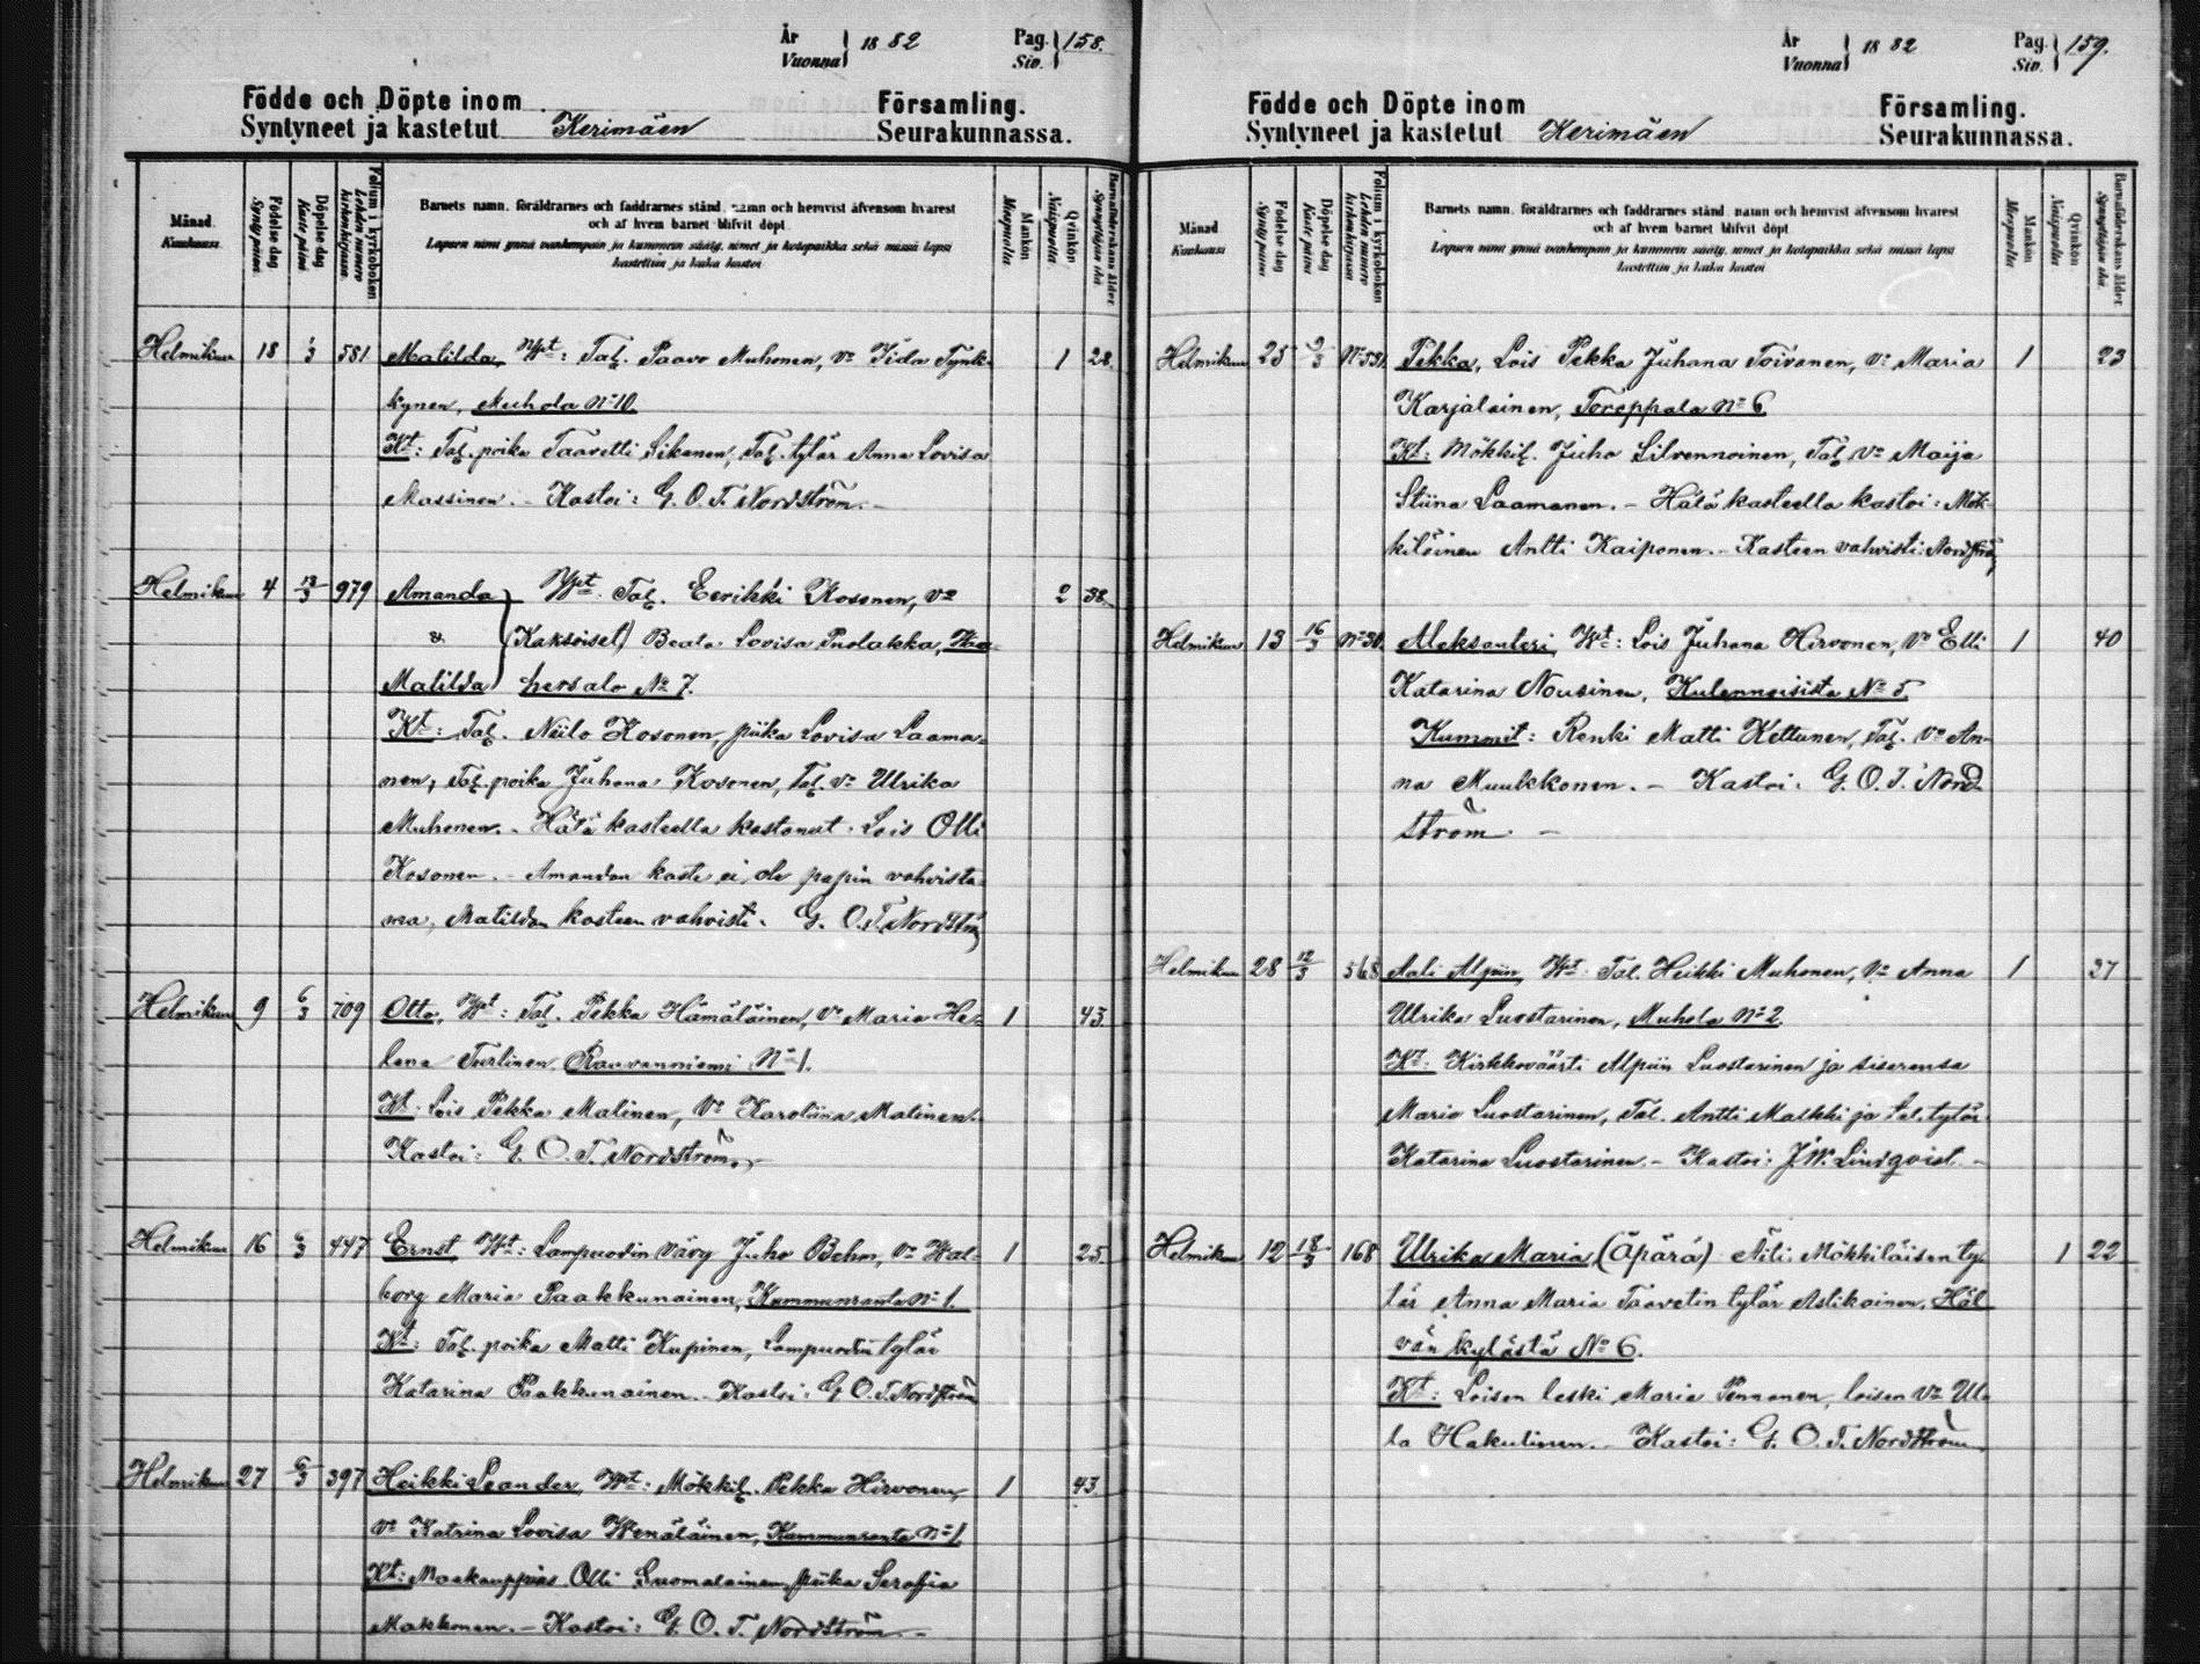 År
Vuonna } 1882
Pag.
Siv. } 158.
Födde och Döpte inom Församling.
Syntyneet ja kastetut Kerimäen Seurakunnassa.
Månad Kuukausi
Födelse dag Synty päivä
Döpelse dag Kaste päivä
Folium i kyrkoboken Lehden numero kirkonkirjassa
Barnets namn, föräldrarnes och faddrarnes stånd, namn och hemvist äfvensom hvarest
och af hvem barnet blifvit döpt
Lapsen nimi ynnä vanhempain ja kummein sääty, nimet ja kotopaikka sekä missä lapsi
kastettiin ja kuka kastoi
Mankön Miespuolia
Qvinkön Naispuolia
Barnaföderskans ålder Synnyttäjän ikä
Helmikuu 18 1/3 581 Matilda, Wht: Tal. Paavo Muhonen, vo Iida Tynk- 1 28.
kynen, Muhola No 10
Kt: Tal. poika Taavetti Sikanen, Tal. tytär Anna Lovisa
Massinen. - Kastoi: G. O. T. Nordström. -
Helmikuu 4 13/3 979 Amanda Wht. Tal. Eerikki Kosonen, vo 2 38
& (Kaksoiset) Beata Lovisa Puolakka,
Matilda hersalo No 7.
Kt: Tal. Niilo Kosonen, piika Lovisa Laama-
nen, Tal. poika Juhana Kosonen, Tal. vo Ulrika
Muhonen. - Hätä kasteella kastanut: Lois Olli
Kosonen. - Amandan kaste ei ole papin vahvista-
ma, Matildan kasteen vahvisti. G. O. T. Nordström
Helmikuu 9 6/3 709 Otto, Wht: Tal. Pekka Hämäläinen, vo Maria He- 1 43.
lena Turtinen, Rauvanniemi No 1.
Kt. Lois Pekka Malinen, vo Karoliina Malinen.
Kastoi: G. O. T. Nordström. -
Helmikuu 16 6/3 447 Ernst, Wht: Lampuodin vävy Juho Behm, vo Wal- 1 25.
borg Maria Paakkunainen, Kummunranta No 1.
Kt: Tal. poika Matti Kupinen, Lampuodin tytär
Katarina Paakkunainen. - Kastoi: G. O. T. Nordström
Helmikuu 27 6/3 397 Heikki Leander, Wht: Mökkil. Pekka Hirvonen, 1 43.
vo Katrina Lovisa Wenäläinen, Kummunranta No 1
Kt: Maakauppias Olli Luomalainen, piika Serafia
Makkonen. - Kastoi: G. O. T. Nordström. -
År
Vuonna } 1882
Pag.
Siv. } 159.
Födde och Döpte inom Församling.
Syntyneet ja kastetut Kerimäen Seurakunnassa.
Månad Kuukausi
Födelse dag Synty päivä
Döpelse dag Kaste päivä
Folium i kyrkoboken Lehden numero kirkonkirjassa
Barnets namn, föräldrarnes och faddrarnes stånd, namn och hemvist äfvensom hvarest
och af hvem barnet blifvit döpt
Lapsen nimi ynnä vanhempain ja kummein sääty, nimet ja kotopaikka sekä missä lapsi
kastettiin ja kuka kastoi
Mankön Miespuolia
Qvinkön Naispuolia
Barnaföderskans ålder Synnyttäjän ikä
Helmikuu 25 9/3 No 531. Pekka, Lois Pekka Juhana Toivonen, vo Maria 1 23
Karjalainen, Toroppala No 6
Kt: Mökkil. Juho Silvennoinen, Tal. vo Maija
Stiina Laamanen. - Hätä kasteella kastoi: Mök-
kiläinen Antti Kaiponen. - Kasteen vahvisti: Nordström
Helmikuu 13 16/3 No 30. Aleksanteri, Wht: Lois Juhana Hirvonen, vo Elli 1 40
Katarina Nousinen, Kulennoisista No 5
Kummit: Renki Matti Kettunen, Tal. vo An-
na Muukkonen. - Kastoi: G. O. T. Nord-
ström -
Helmikuu 28 12/3 568 Aali Alpiin, Wht: Tal. Heikki Muhonen, vo Anna 1 27
Ulrika Luostarinen, Muhola No 2.
Kt: Kirkkoväärti Alpiin Luostarinen ja sisarensa
Maria Luostarinen, Tal. Antti Malkki ja tal. tytär
Katarina Luostarinen. - Kastoi: J. W. Lindqvist. -
Helmikuu 12 18/3 168 Ulrika Maria (Äpärä) Äiti: Mökkiläisen ty- 1 22
tär Anna Maria Taavetin tytär Astikainen, Häl
vän kylästä No 6.
Kt: Loisen leski Maria Pennanen, loisen vo Ul-
la Hakulinen. - Kastoi: G. O. T. Nordström